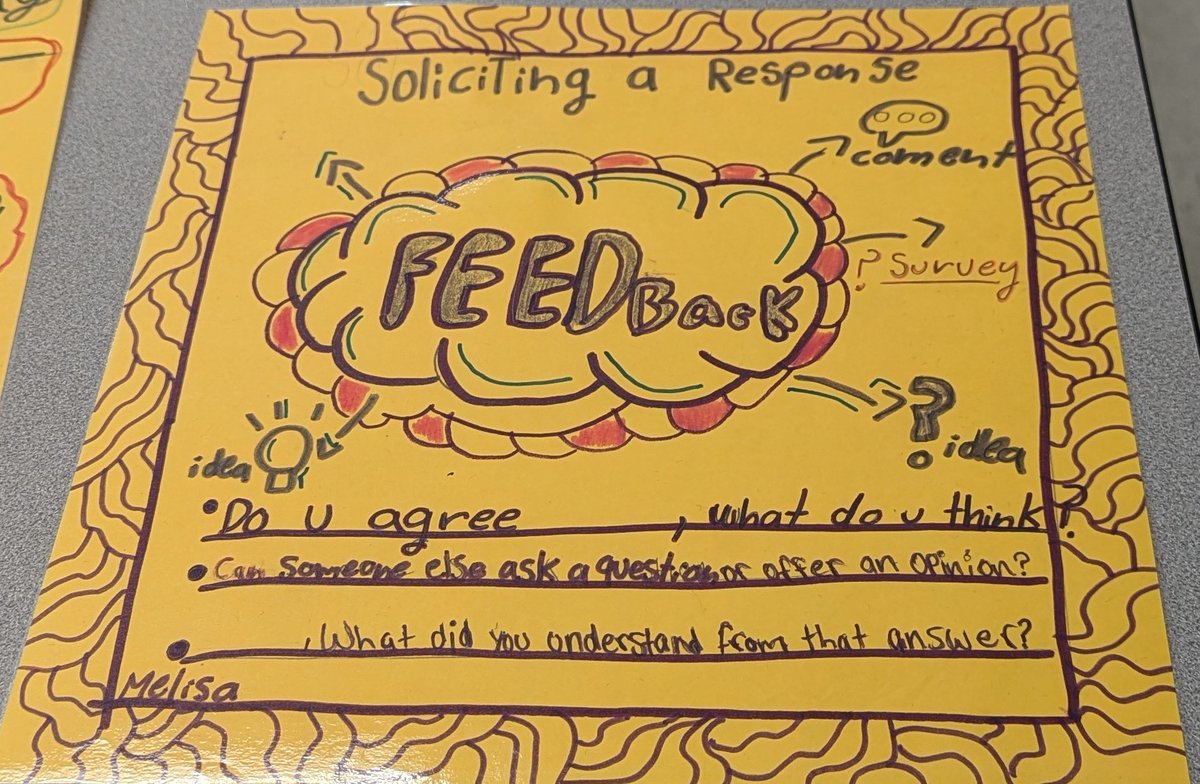 Soliciting a Response
coment
FEEDBack
? Survey
?
idea
idea
•Do u agree ______, what do u think?
•Can someone else ask a question or offer an opinion?
•______, What did you understand from that answer?
Melisa